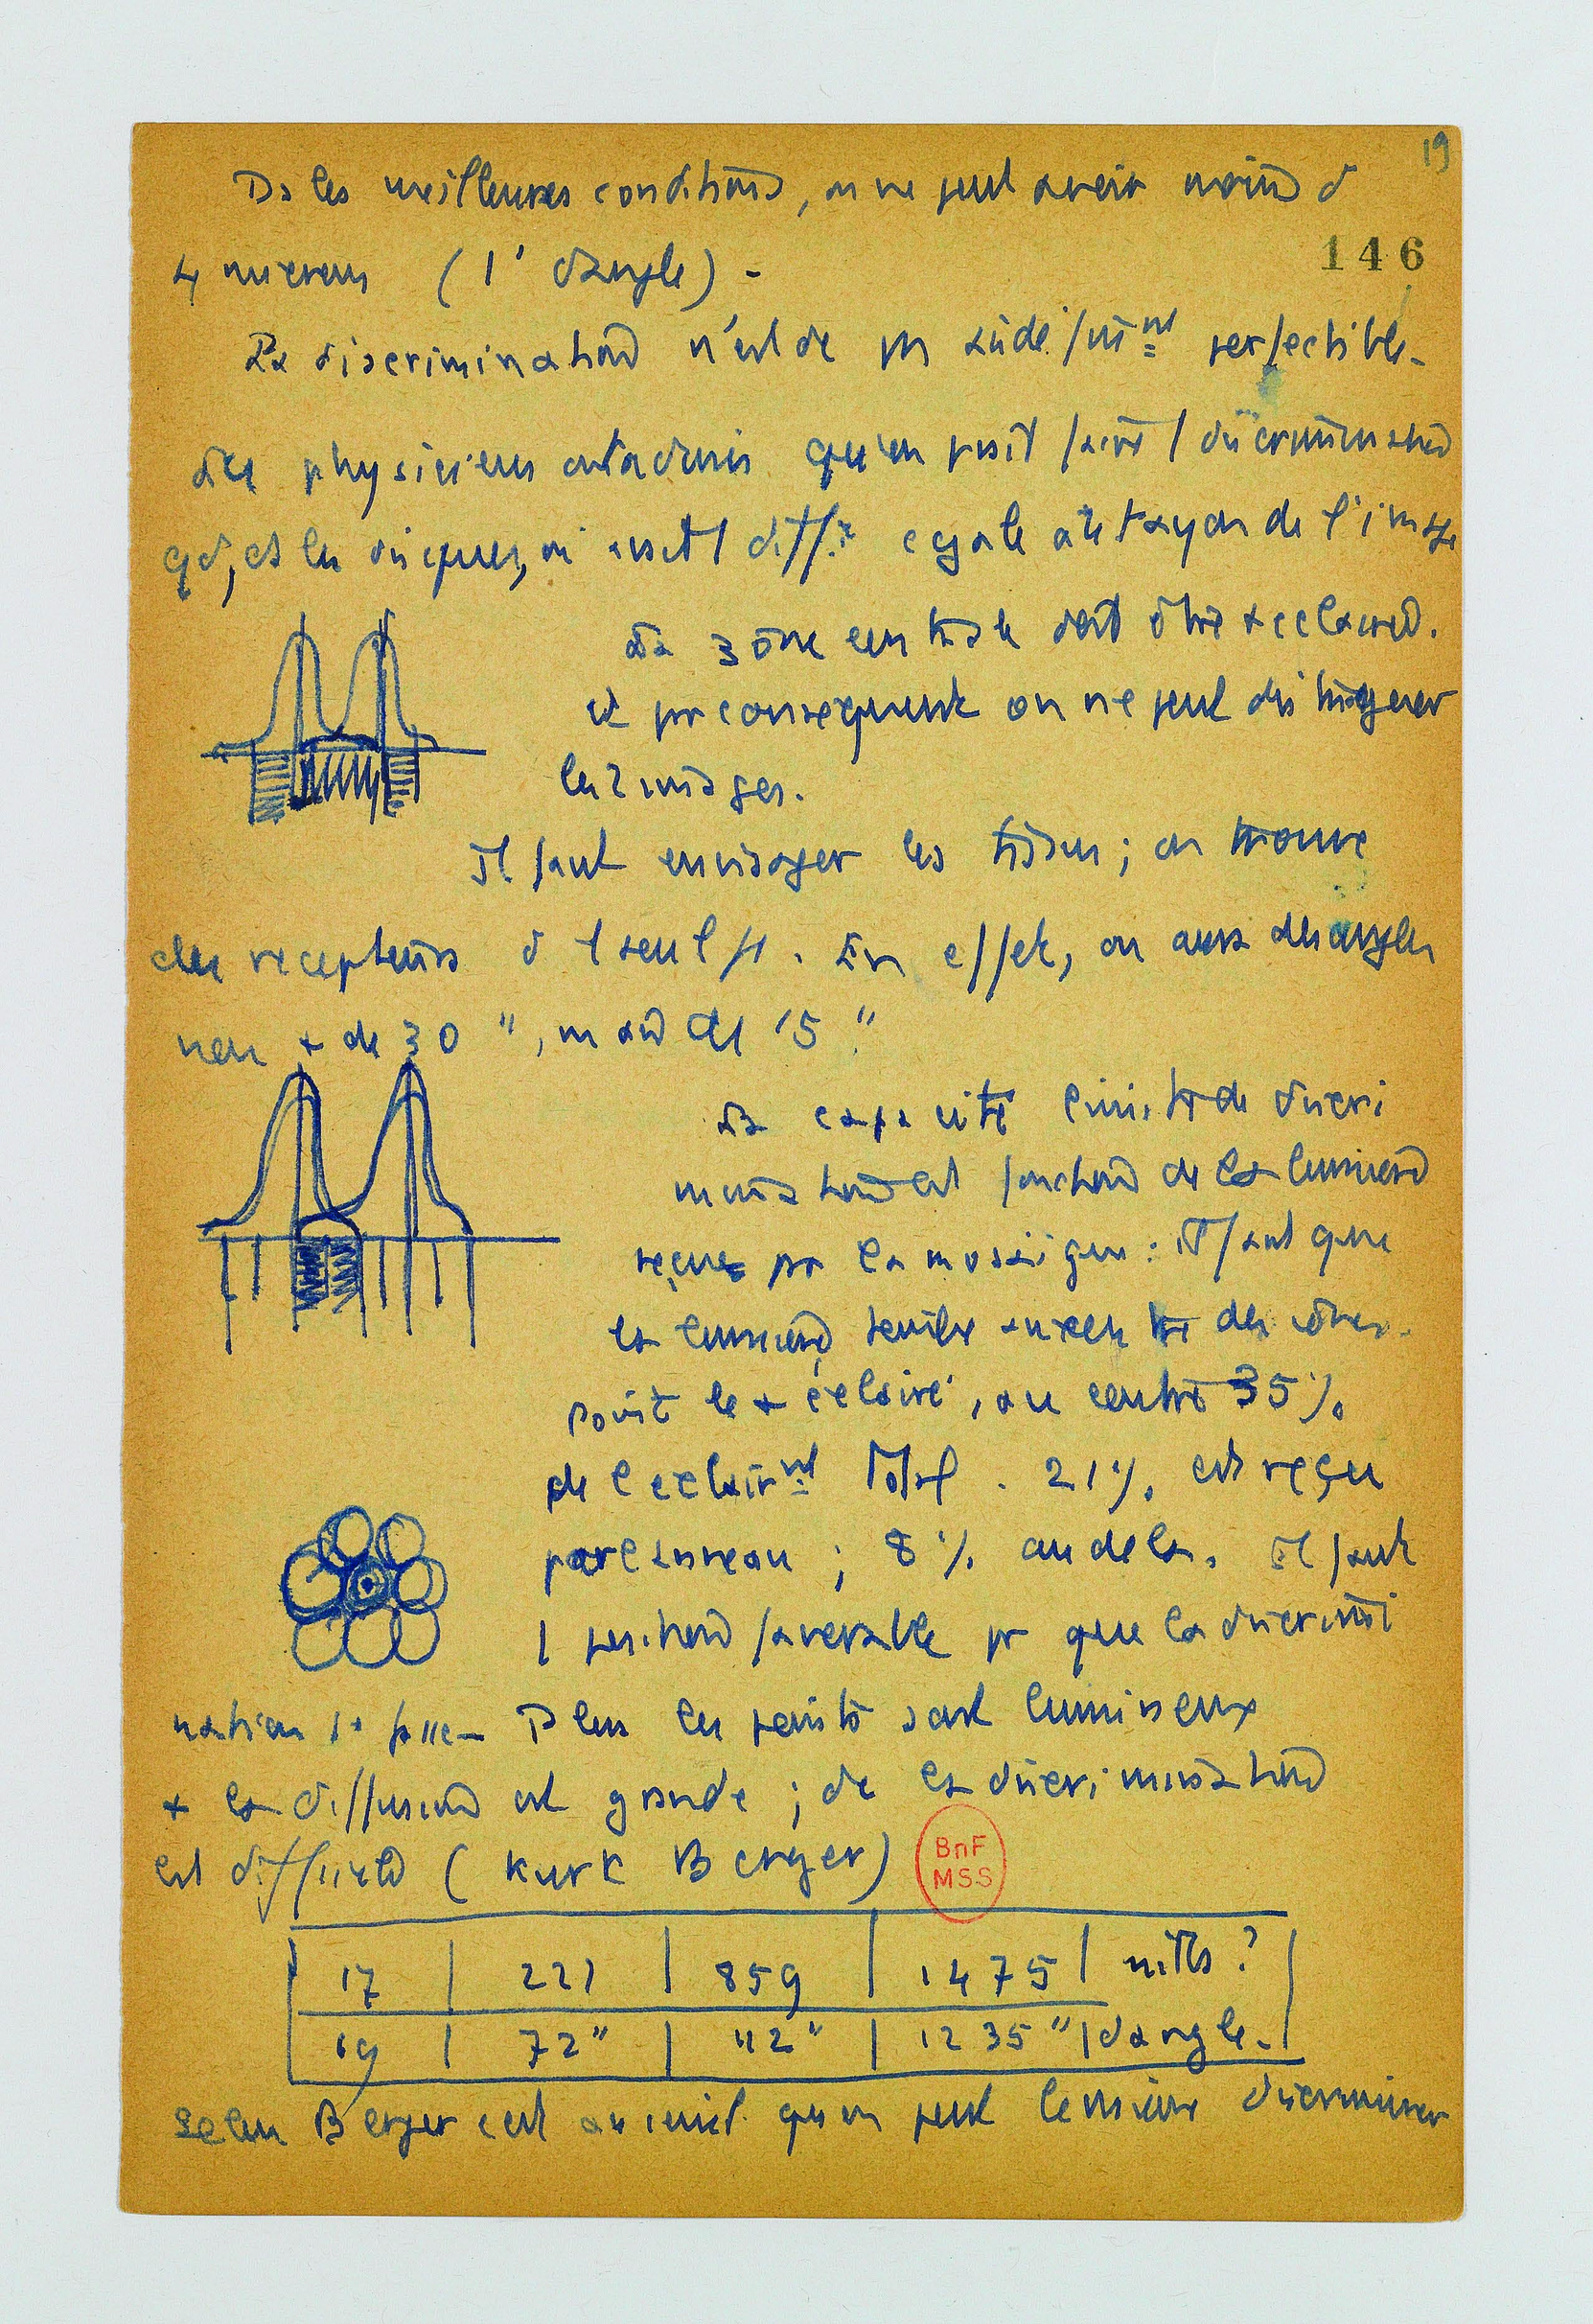 19
Ds les meilleures conditions, on ne peut avoir moins d
146
4 microns (1' d'angle) -
La discrimination n'est dc pas indéfinint perfectible.
des physiciens ont admis qu'on puit faire 1 discrimination
qd, ds les disques, on avait 1 diff. egale au rayon de l'image
La zone centrale doit être + eclairée.
et par consequent on ne peut distinguer
les 2 images.
Il faut envisager les tissus ; on trouve
des recepteurs d 1 seul µ. En effet, on aura des angles
non + de 30 ", mais de 15 "
La capacité limite de discri
mination est fonction de la lumière
reçue par la mosaique : il faut que
la lumière tombe au centre des cônes.
point le + éclairé, au centre 35 %
de l eclairnt total . 21 % est reçu
par l anneau ; 8 % au dela. Il faut
1 position favorable pr que la discrimi
nation se fasse - Plus les points sont lumineux
+ la diffusion est grande ; dc la discrimination
est difficile ( Kurt Berger )
BnF
MSS
17 | 221 | 859 | 1475 | nitts ?
69 | 72" | 112" | 1235" | d'angle.
Selon Berger c'est qu on peut le mieux discriminer